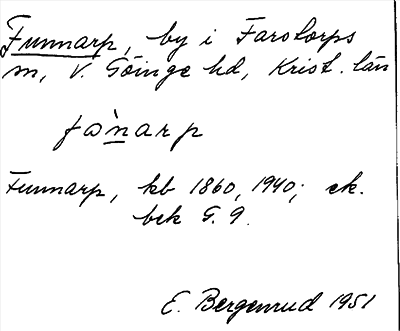 Funnarp, by i Farstorps
sn, V. Göinge hd, Krist. län
fɵ̀narp
Funnarp, kb 1860, 1940; ek.
bek G. 9.
E. Bergenrud 1951